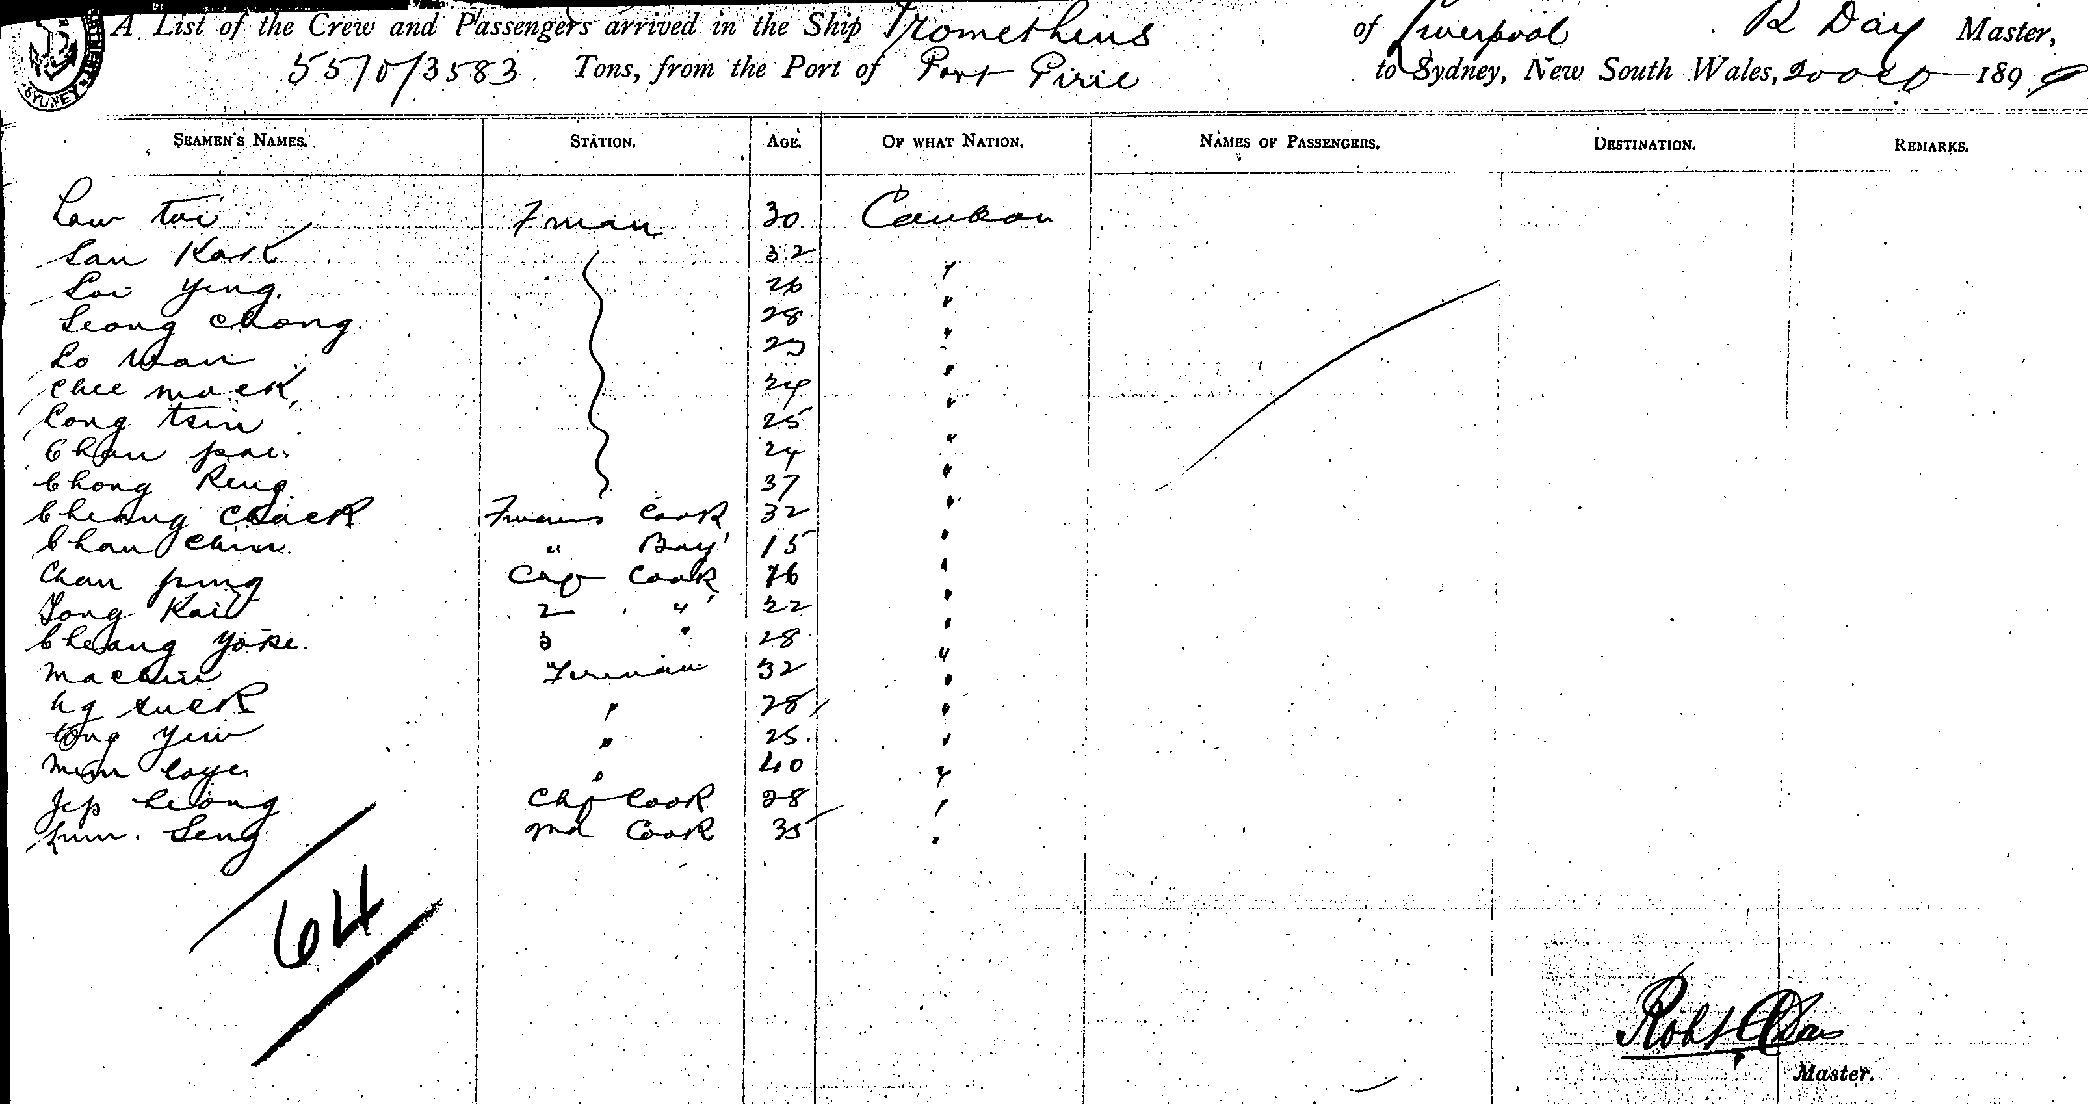 A List of the Crew and Passengers arrived in the Ship Prometheus of Liverpool R Day Master,
5570/3583 Tons, from the Port of Port Pirie to Sydney, New South Wales, 20 Oct 1899
SYDNEY
SEAMEN'S NAMES. STATION. AGE. OF WHAT NATION. NAMES OF PASSENGERS. DESTINATION. REMARKS.
Law Toi Fman 30 Canton
Lau Kok 32 "
Loi Ying 26 "
Leong Chong 28 "
Lo Wan "
Chee Mock 24 "
Cong Tsin 25 "
Chan Pai 24 "
Chong Reng 37 "
Cheung Chack Firemans Cook 32 "
Chan Chin " Boy 15 "
Chan Pung Chf Cook "
Tong Kai 2 " 22 "
Cheang Yoke 3 " 28 "
Machin Fireman 32 "
Ng Luck " 28 "
Ong Yiw " 25 "
Mun Loye " 40 "
Jep Leong Chf Cook 28 "
Kum Seng 2nd Cook 35 "
64
Robt Day
Master.